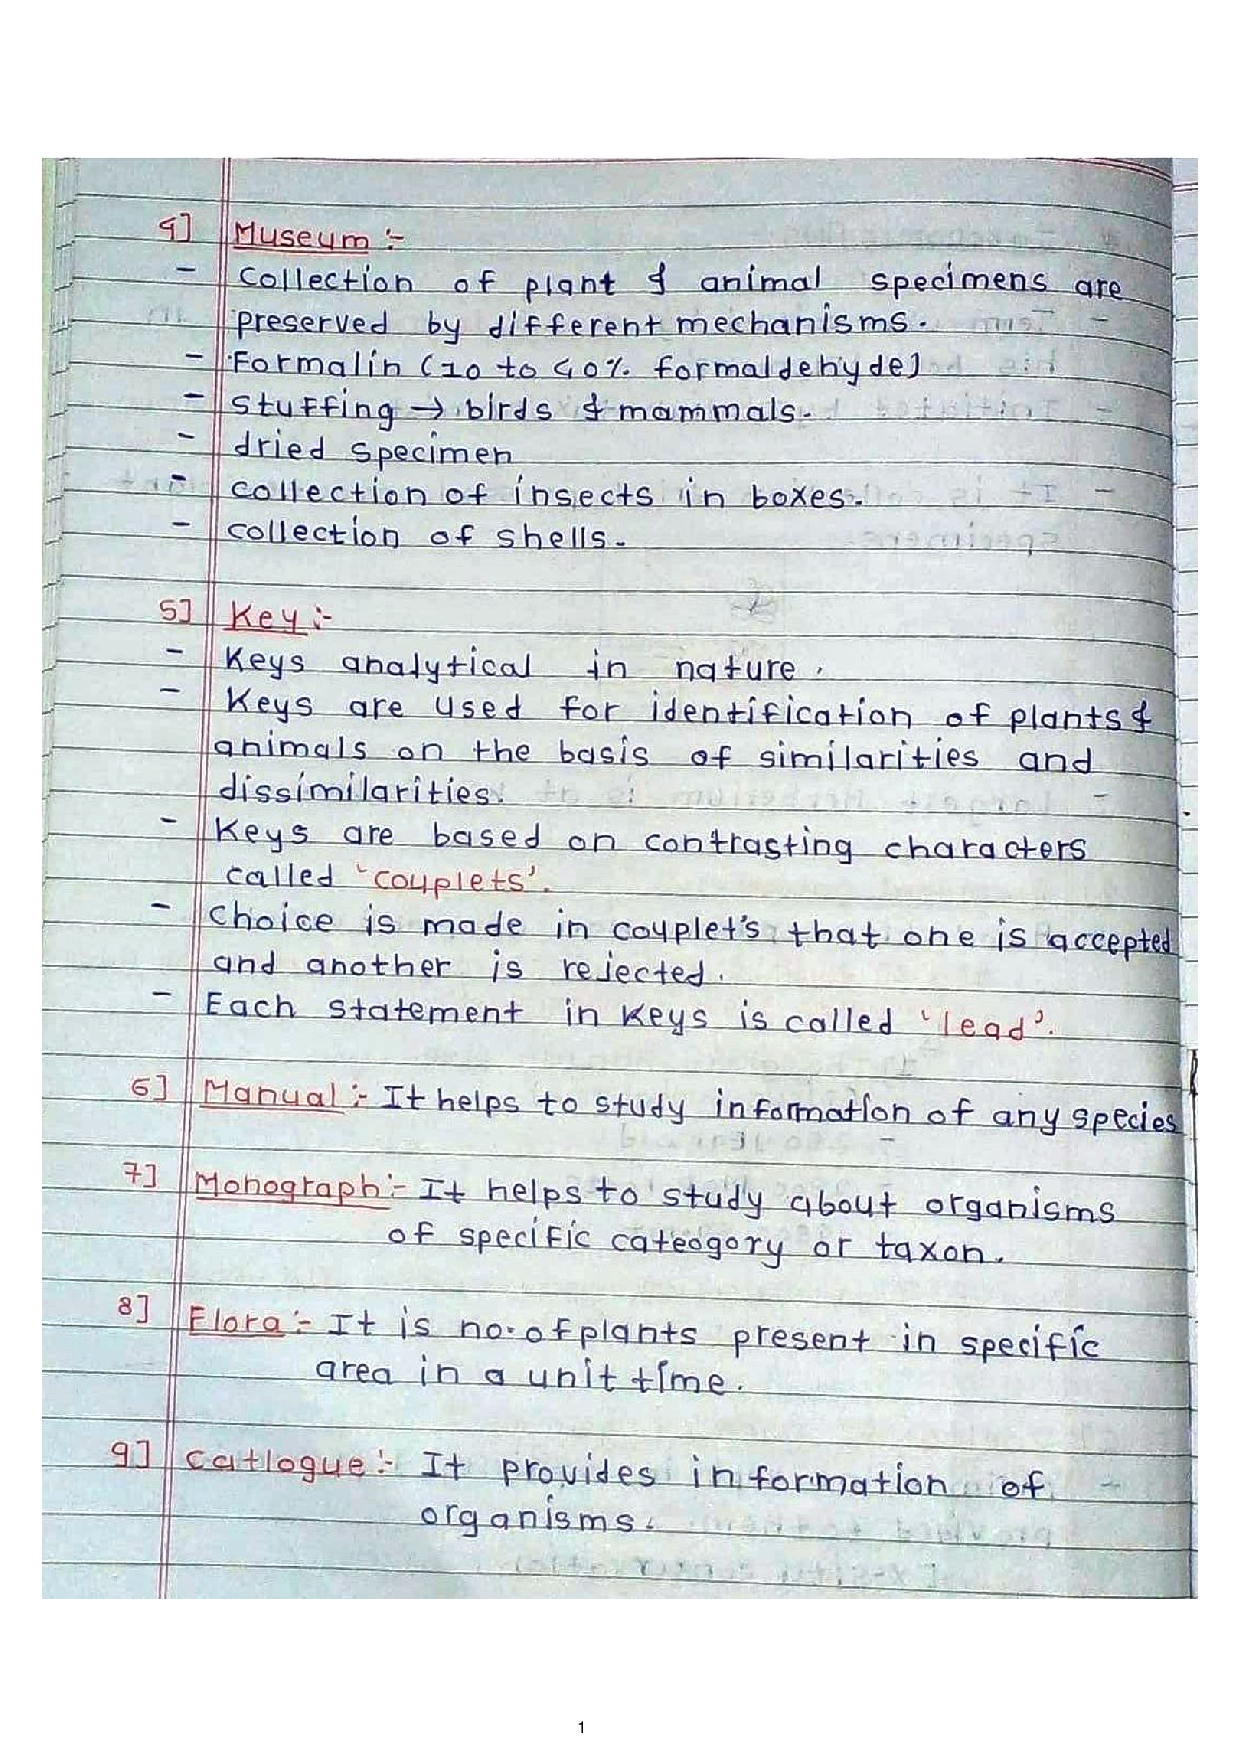 4] Museum :-
- collection of plant & animal specimens are
preserved by different mechanisms.
- Formalin (10 to 40% formaldehyde)
- stuffing → birds & mammals.
- dried specimen
- collection of insects in boxes.
- collection of shells.
5] Key :-
- Keys analytical in nature.
- Keys are used for identification of plants &
animals on the basis of similarities and
dissimilarities.
- Keys are based on contrasting characters
called 'couplets'.
- choice is made in couplet's that one is accepted
and another is rejected.
- Each statement in Keys is called 'lead'.
6] Manual :- It helps to study information of any species
7] Monograph :- It helps to study about organisms
of specific cateogory or taxon.
8] Flora :- It is no. of plants present in specific
area in a unit time.
9] catlogue :- It provides information of
organisms.
1